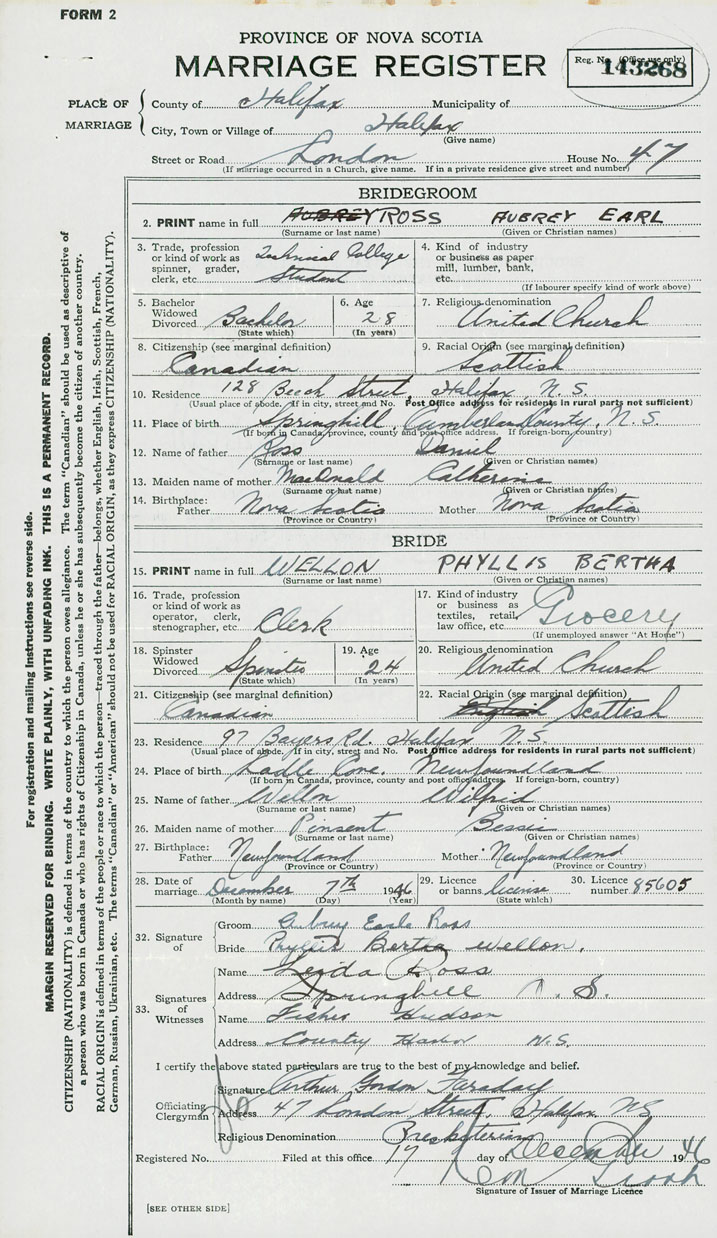 FORM 2
PROVINCE OF NOVA SCOTIA
MARRIAGE REGISTER
Reg. No. (Office use only)
143268
PLACE OF MARRIAGE
County of Halifax Municipality of
City, Town or Village of Halifax
(Give name)
Street or Road London House No. 47
(If marriage occurred in a Church, give name. If in a private residence give street and number)
BRIDEGROOM
2. PRINT name in full AUBREY ROSS AUBREY EARL
(Surname or last name) (Given or Christian names)
3. Trade, profession or kind of work as spinner, grader, clerk, etc. Technical College Student
4. Kind of industry or business as paper mill, lumber, bank, etc.
(If labourer specify kind of work above)
5. Bachelor Widowed Divorced Bachelor
(State which)
6. Age 28
(In years)
7. Religious denomination
United Church
8. Citizenship (see marginal definition)
Canadian
9. Racial Origin (see marginal definition)
Scottish
10. Residence 128 Beech Street, Halifax, N.S.
(Usual place of abode. If in city, street and No. Post Office address for residents in rural parts not sufficient)
11. Place of birth Springhill, Cumberland County, N.S.
(If born in Canada, province, county and post office address. If foreign-born, country)
12. Name of father Ross Daniel
(Surname or last name) (Given or Christian names)
13. Maiden name of mother MacDonald Catherine
(Surname or last name) (Given or Christian names)
14. Birthplace: Father Nova Scotia Mother Nova Scotia
(Province or Country) (Province or Country)
BRIDE
15. PRINT name in full WELLON PHYLLIS BERTHA
(Surname or last name) (Given or Christian names)
16. Trade, profession or kind of work as operator, clerk, stenographer, etc. Clerk
17. Kind of industry or business as textiles, retail, law office, etc. Grocery
(If unemployed answer "At Home")
18. Spinster Widowed Divorced Spinster
(State which)
19. Age 24
(In years)
20. Religious denomination
United Church
21. Citizenship (see marginal definition)
Canadian
22. Racial Origin (see marginal definition)
English Scottish
23. Residence 97 Bayers Rd. Halifax N.S.
(Usual place of abode. If in city, street and No. Post Office address for residents in rural parts not sufficient)
24. Place of birth Ladle Cove, Newfoundland
(If born in Canada, province, county and post office address. If foreign-born, country)
25. Name of father Wellon Wilfrid
(Surname or last name) (Given or Christian names)
26. Maiden name of mother Pinsent Bessie
(Surname or last name) (Given or Christian names)
27. Birthplace: Father Newfoundland Mother Newfoundland
(Province or Country) (Province or Country)
28. Date of marriage December 7th 1946
(Month by name) (Day) (Year)
29. Licence or banns license
(State which)
30. Licence number 85605
32. Signature of
Groom Aubrey Earle Ross
Bride Phyllis Bertha Wellon.
33. Signatures of Witnesses
Name Leida Ross
Address Springhill N.S.
Name Fisher Hudson
Address Country Harbor N.S.
I certify the above stated particulars are true to the best of my knowledge and belief.
Officiating Clergyman
Signature Arthur Gordon Faraday
Address 47 London Street, Halifax NS
Religious Denomination Presbyterian
Registered No. Filed at this office 17 day of December 1946
Signature of Issuer of Marriage Licence
[SEE OTHER SIDE]
For registration and mailing instructions see reverse side.
MARGIN RESERVED FOR BINDING. WRITE PLAINLY, WITH UNFADING INK. THIS IS A PERMANENT RECORD.
CITIZENSHIP (NATIONALITY) is defined in terms of the country to which the person owes allegiance. The term "Canadian" should be used as descriptive of
a person who was born in Canada or who has rights of Citizenship in Canada, unless he or she has subsequently become the citizen of another country.
RACIAL ORIGIN is defined in terms of the people or race to which the person—traced through the father—belongs, whether English, Irish, Scottish, French,
German, Russian, Ukrainian, etc. The terms "Canadian" or "American" should not be used for RACIAL ORIGIN, as they express CITIZENSHIP (NATIONALITY).